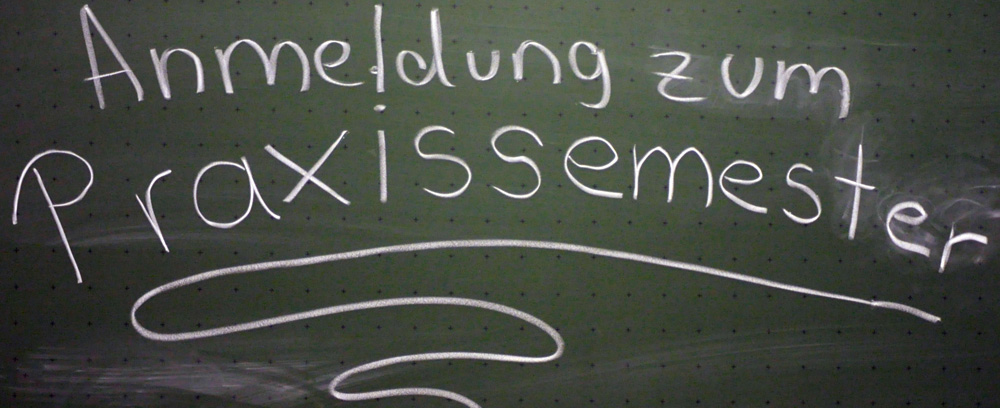 Anmeldung zum
Praxissemester